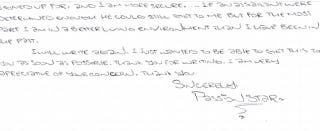 SIGNED UP FOR, AND I AM MORE SECURE... IF AN ASSAILANT WERE
DETERMINED ENOUGH HE COULD STILL GET TO ME BUT FOR THE MOST
PART I AM IN A BETTER LIVING ENVIRONMENT THAN I HAVE BEEN IN
THE PAST.
I WILL WRITE AGAIN. I JUST WANTED TO BE ABLE TO GET THIS TO
YOU AS SOON AS POSSIBLE. THANK YOU FOR WRITING. I AM VERY
APPRECIATIVE OF YOUR CONCERN. THANK YOU.
SINCERELY,
PASSION STAR